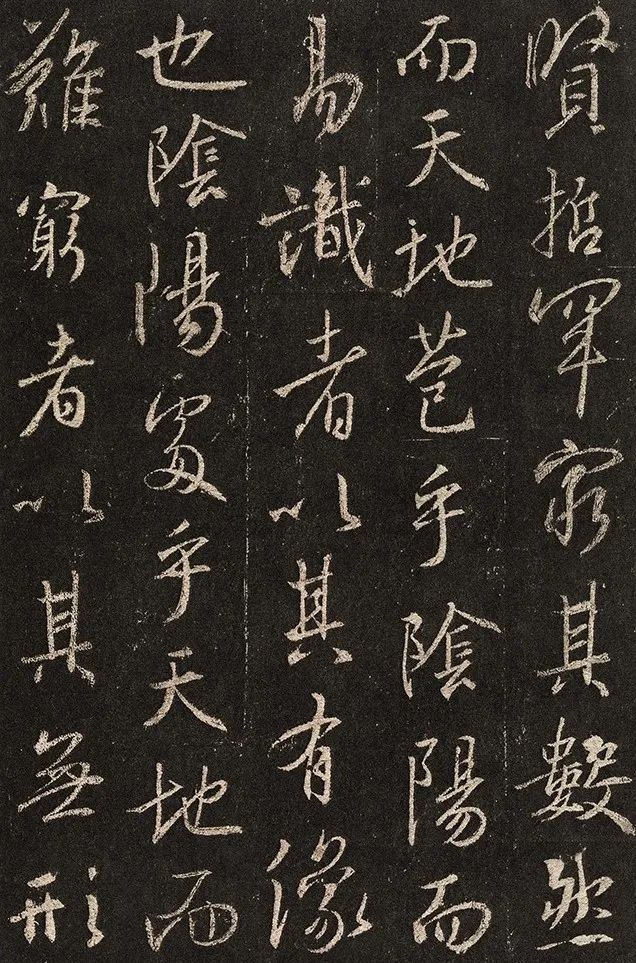 賢哲罕窮其數然
而天地苞乎陰陽而
易識者以其有像
也陰陽處乎天地而
難窮者以其無形